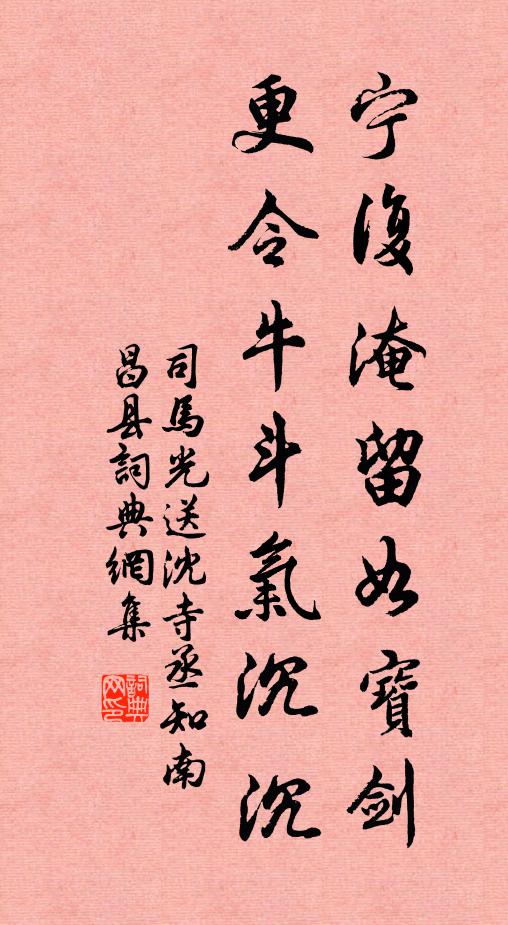 宁復淹留如寶劍
更令牛斗氣沉沉
司馬光送沈寺丞知南
昌县詞典網集
詞典
网印